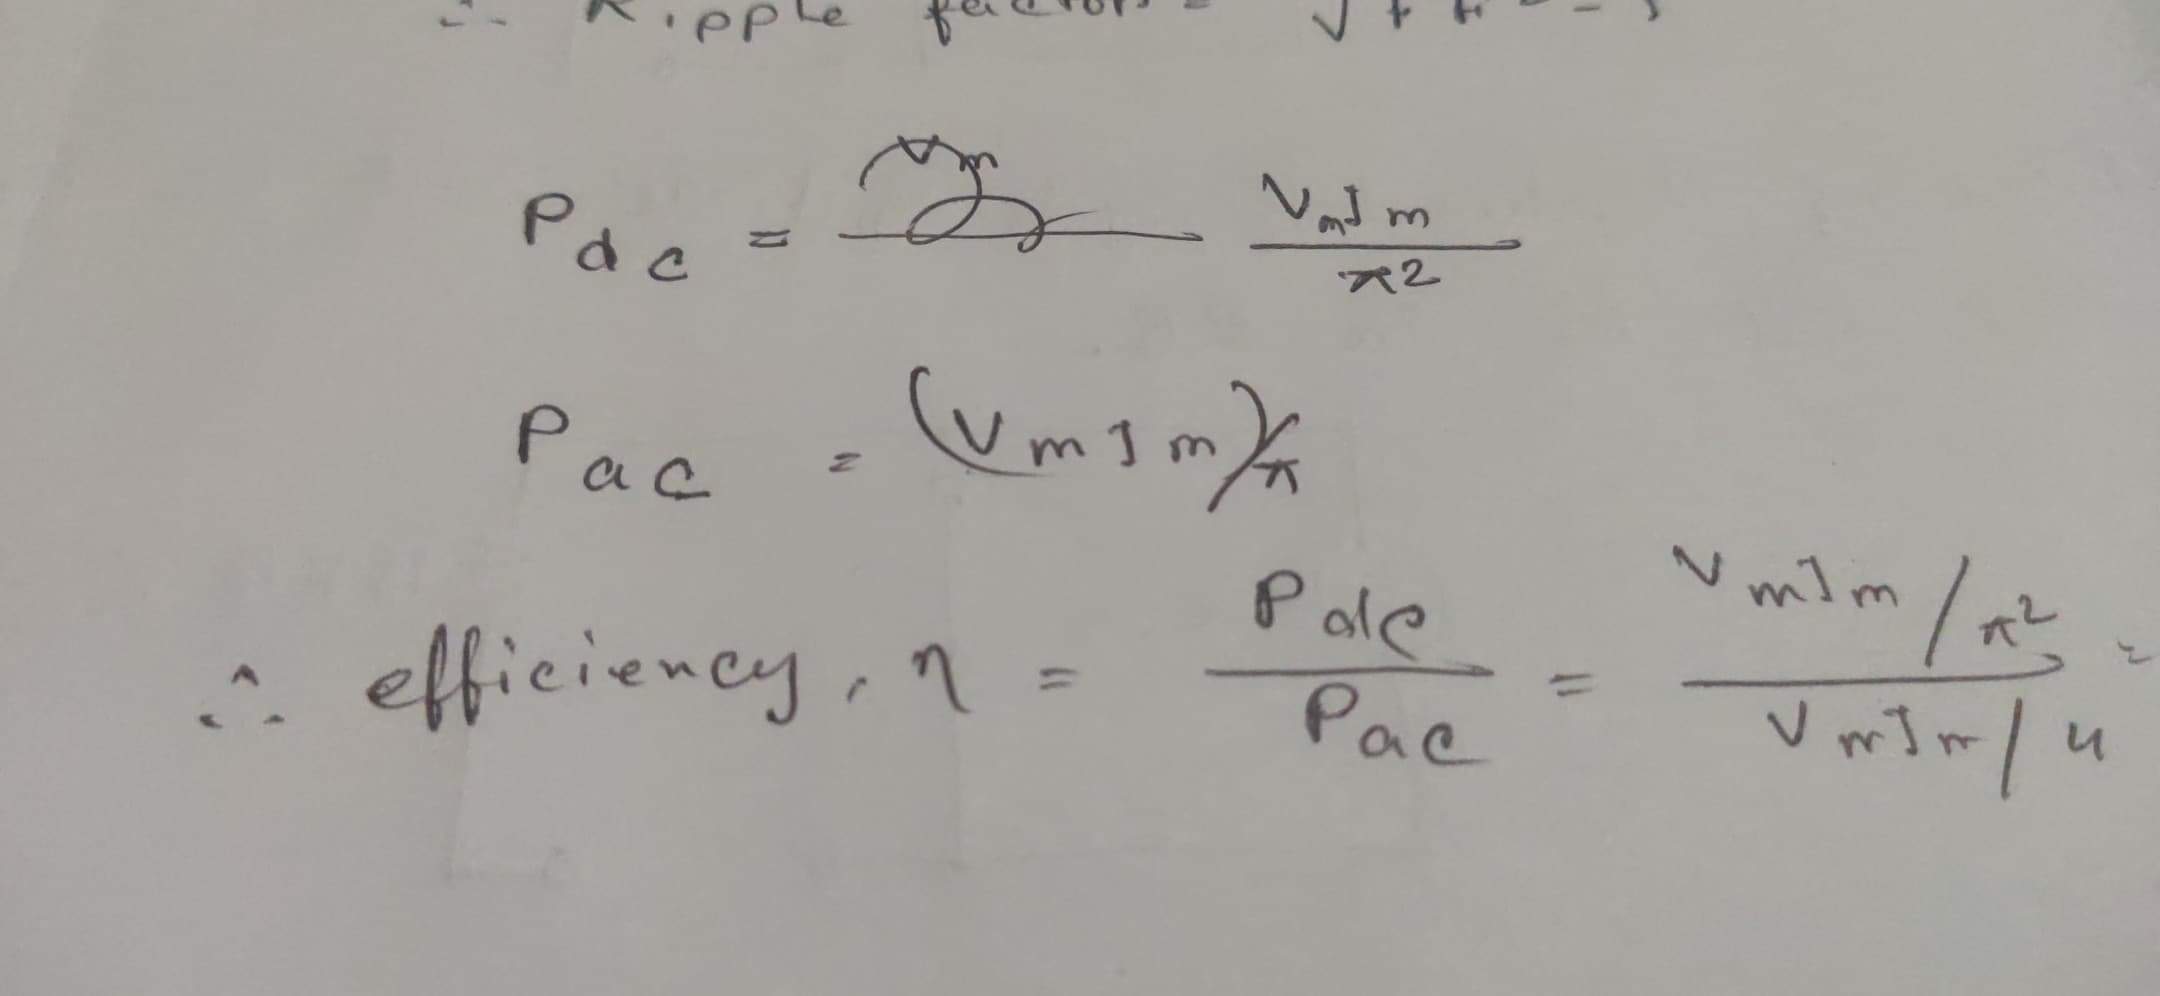 ∴ Ripple factor =
P_dc = V_m I_m / π²
P_ac = (V_m I_m)/π
∴ efficiency, η = P_dc / P_ac = (V_m I_m / π²) / (V_m I_m / 4) =